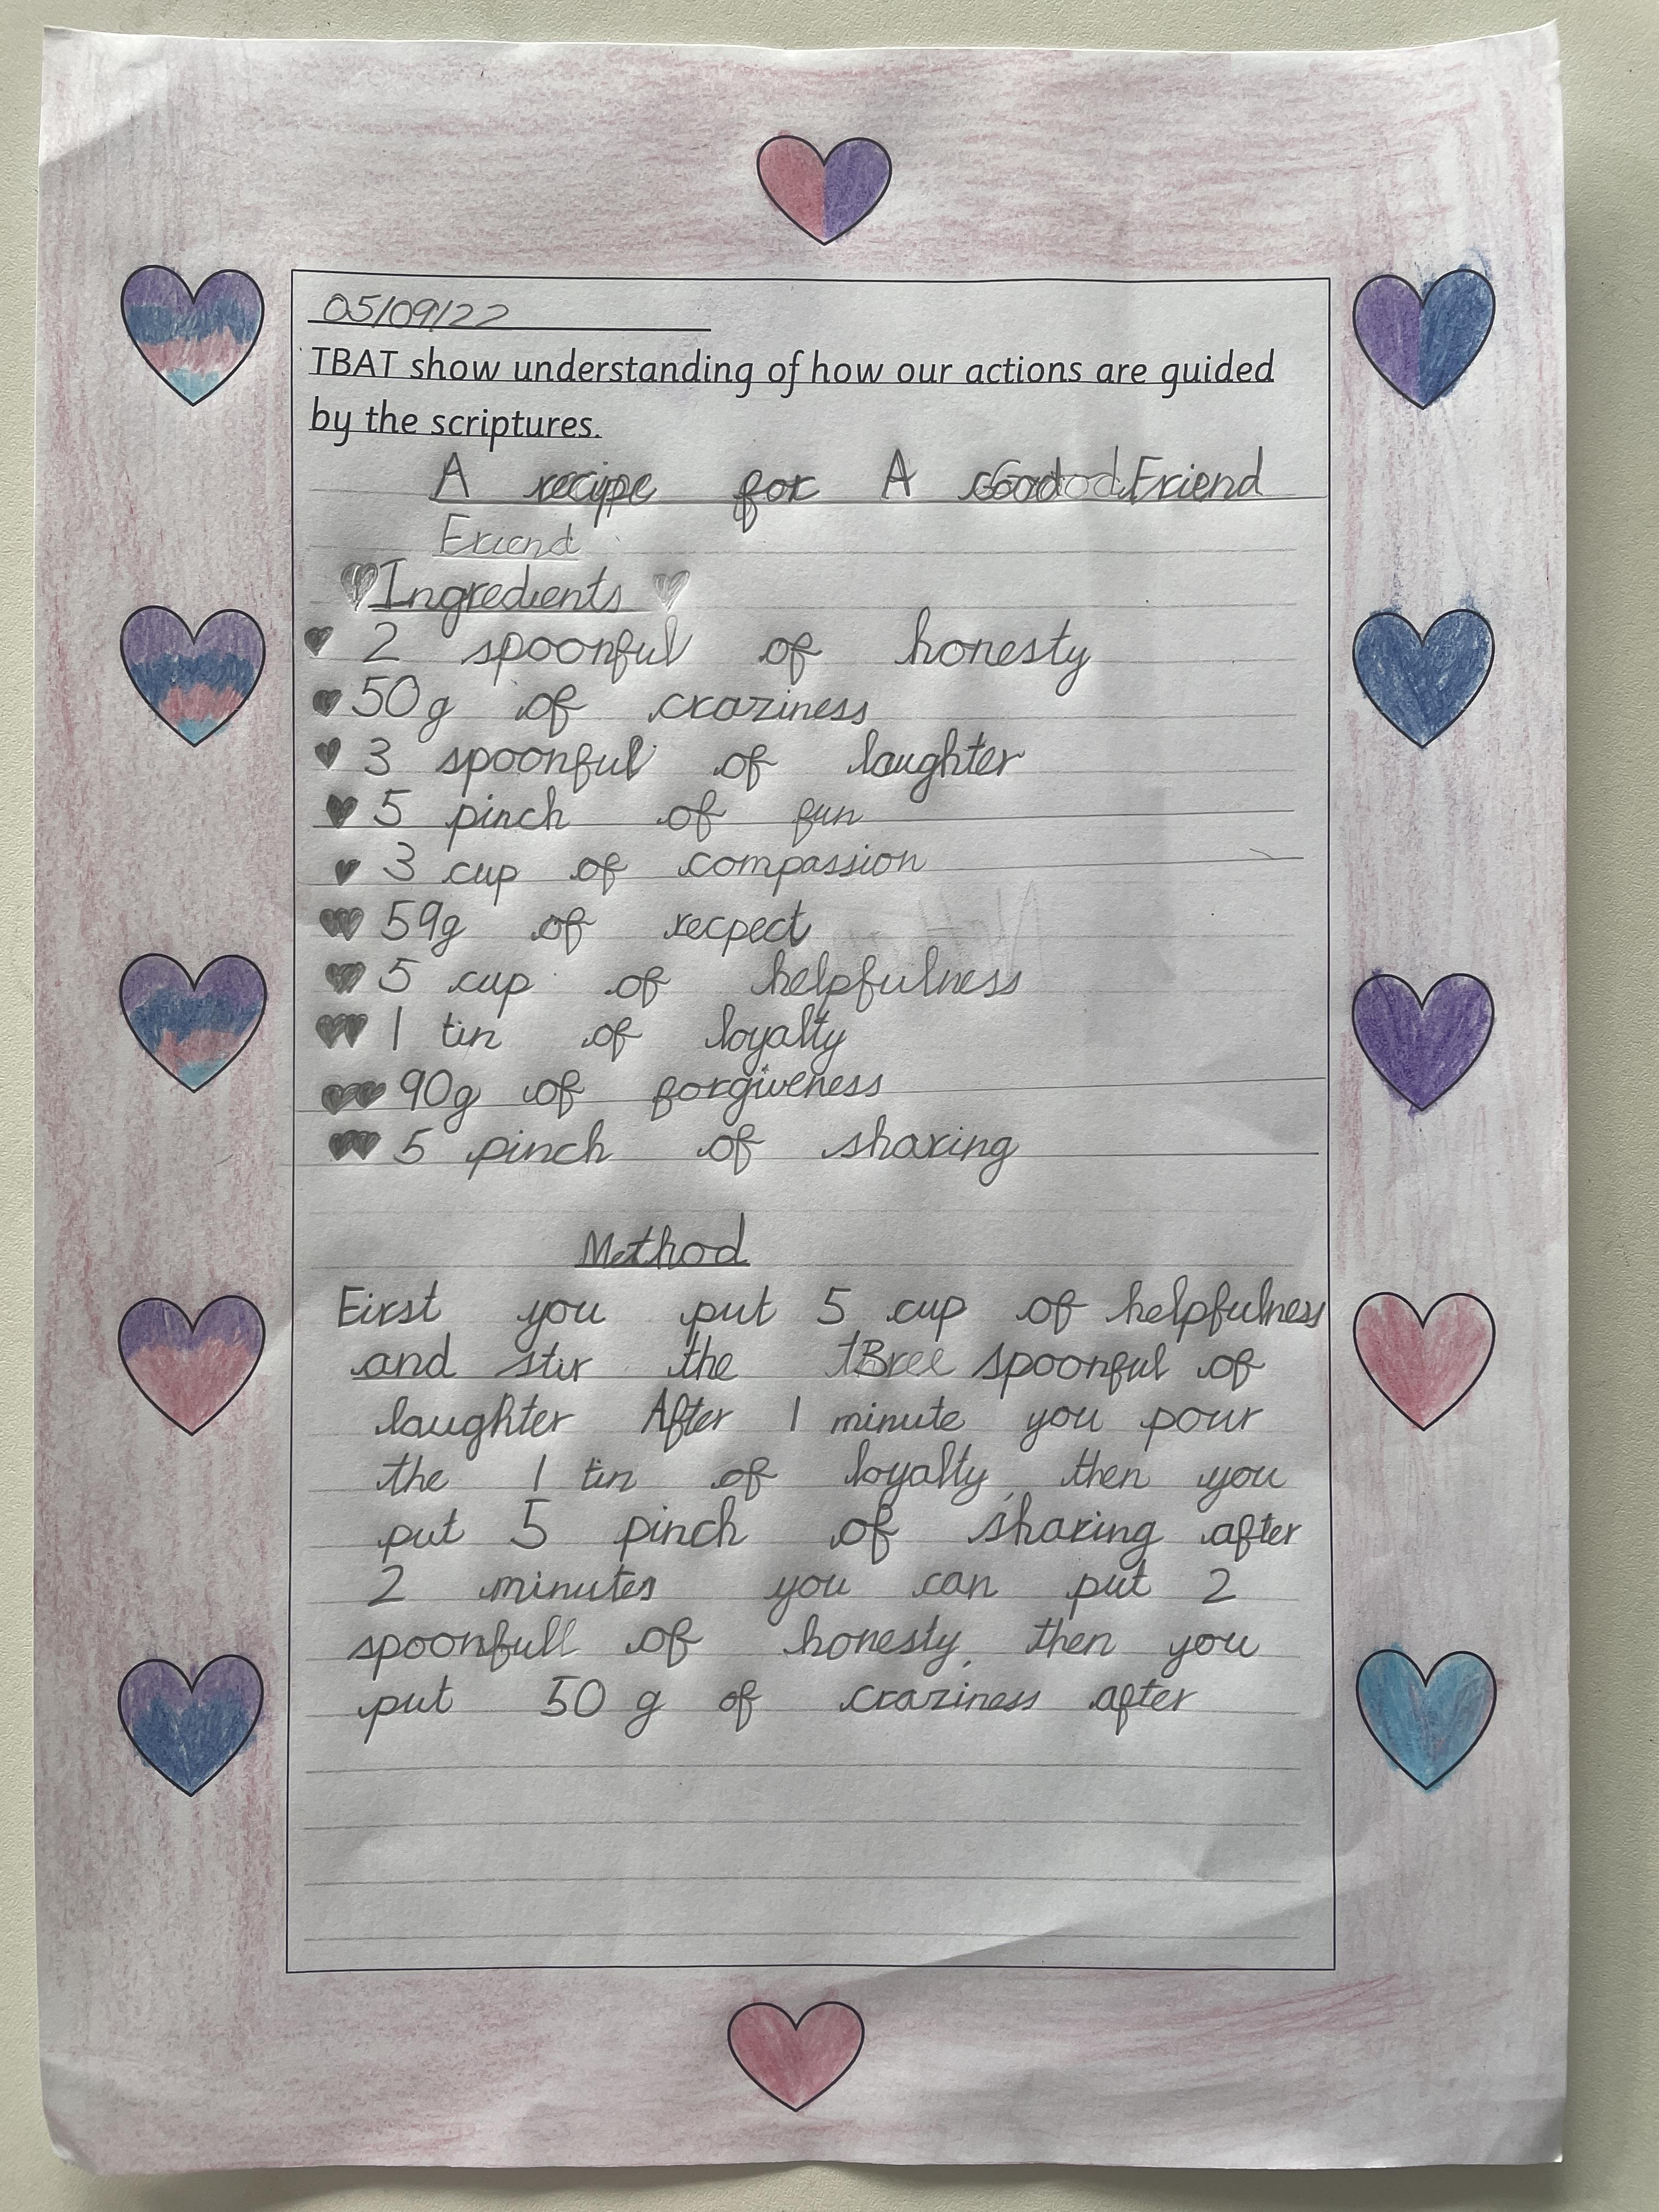 05/09/22
TBAT show understanding of how our actions are guided
by the scriptures.
A recipe for A Good Friend
Friend
Ingredients
2 spoonful of honesty
50g of craziness
3 spoonful of laughter
5 pinch of fun
3 cup of compassion
59g of recpect
5 cup of helpfulness
1 tin of loyalty
90g of forgiveness
5 pinch of sharing
Method
First you put 5 cup of helpfulness
and stir the three spoonful of
laughter After 1 minute you pour
the 1 tin of loyalty, then you
put 5 pinch of sharing after
2 minutes you can put 2
spoonfull of honesty, then you
put 50 g of craziness after